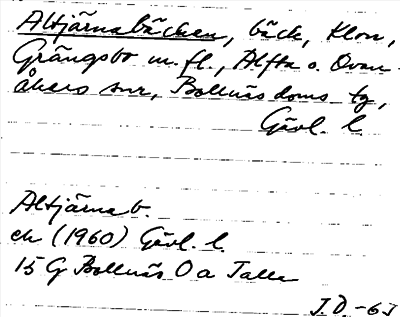 Altjärnsbäcken, bäck, Klon,
Grängsbo m. fl., Alfta o. Ovan-
åkers snr, Bollnäs doms tg,
Gävl. l.
Altjärnsb.
ek (1960) Gävl. l.
15 G Bollnäs O a Talle
J.D.-63